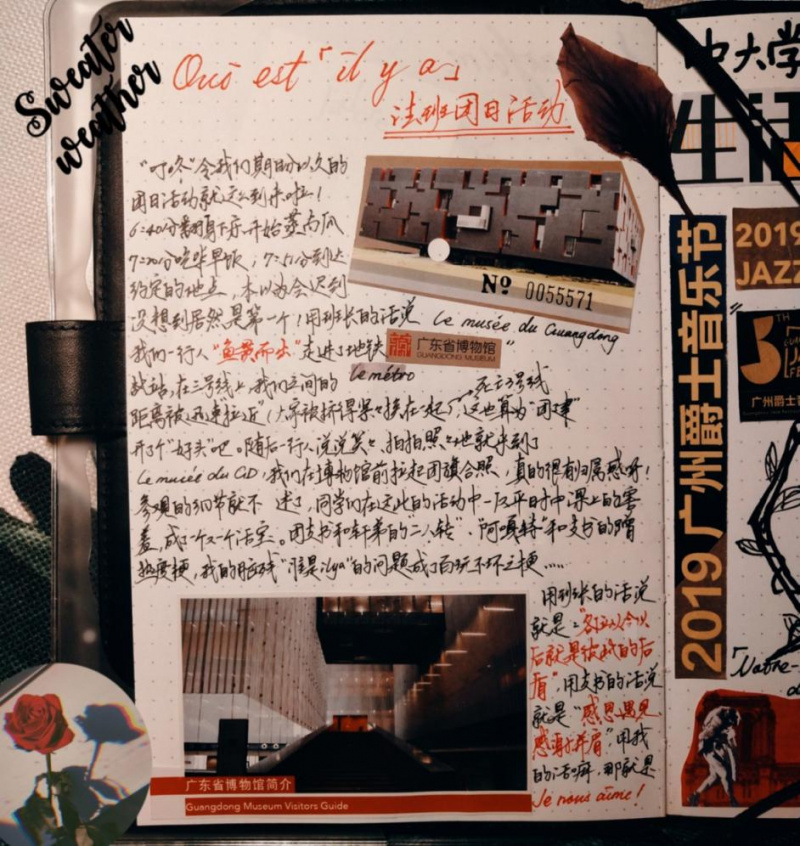 Sweater
weather
Où est「il y a」
法班团日活动
"叮咚"令我们期盼以久的
团日活动就这么到来啦！
6:40分翻身下床开始蒸南瓜
7:20分吃些早饭，7:51分到达
约定的地点，本以为会迟到
没想到居然是第一个！用班长的话说
我们一行人"鱼贯而出"走进了地铁
战站，在三号线上，我们之间的
距离被迅速"拉近"（大家被挤得紧紧挨在一起），这也算为"团建"
死亡3号线
开了个"好头"吧。随后一行人说说笑笑、拍拍照照地就来到了
Le musée du GD，我们在博物馆前拉起团旗合照，真的很有归属感呀！
参观的细节就不 述了，同学们在这此的活动中一反平时中课上的
羞，成了一个又一个活宝。团支书和轩弟的"二人转"、"阿嘎特"和支书的
热度梗，我的脑残"谁是ilya"的问题成了百玩不坏之梗……
Nº 0055571
Le musée du Guangdong
广东省博物馆
GUANGDONG MUSEUM
Le métro
用班长的话说
就是："各位从今以
后就是彼此的后
盾"，用支书的话说
就是"感恩遇见
感谢并肩"，用我
的话嘛，那就是
Je nous aime!
广东省博物馆简介
Guangdong Museum Visitors Guide
中大学
生活
2019
JAZZ
2019广州爵士音乐节
广州爵士音
「Notre-